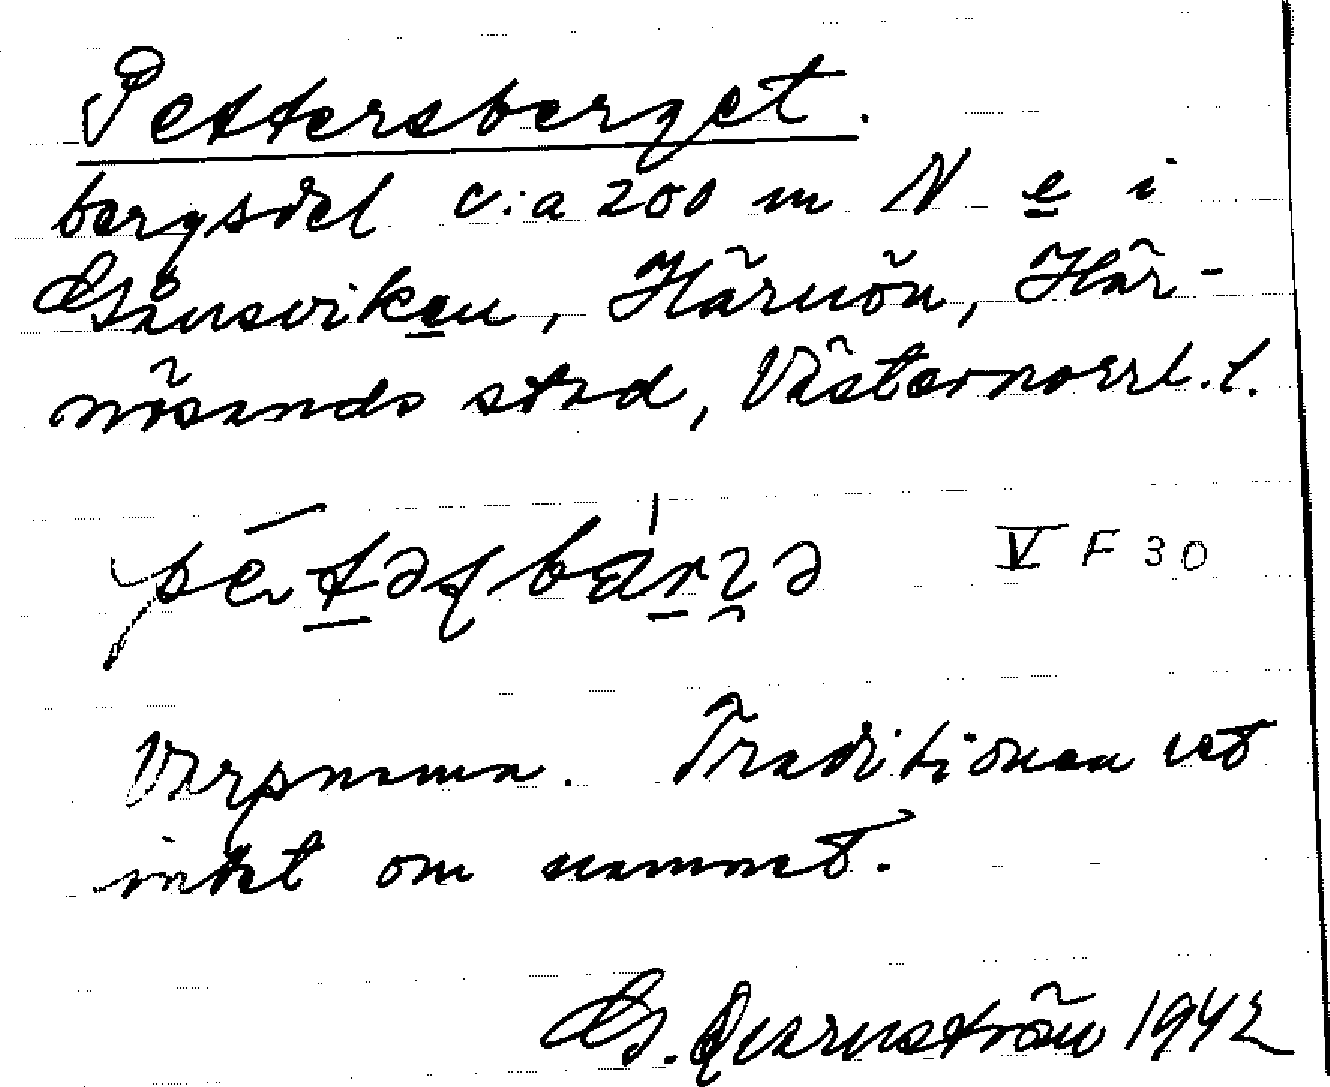 Pettersberget.
bergsdel c:a 200 m N e i
Gånsviken, Härnön, Här-
nösands stad, Västernorrl. l.
V F 30
Varpnamn. Traditionen vet
intet om namnet.
G. Qvarnström 1942